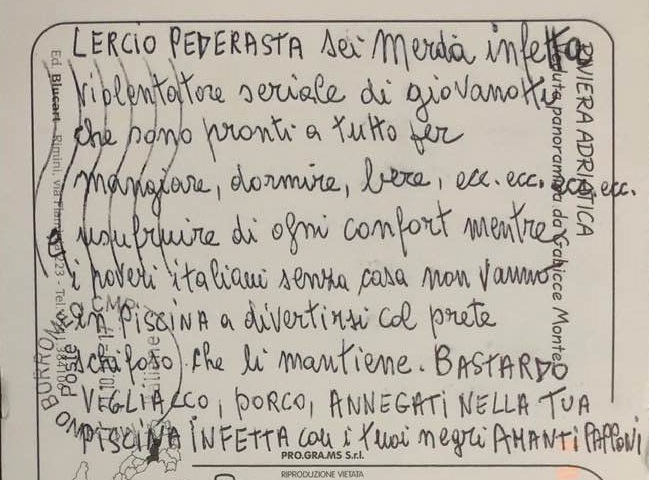 LERCIO PEDERASTA sei merda infetta
violentatore seriale di giovanotti
che sono pronti a tutto per
mangiare, dormire, bere, ecc. ecc. ecc. ecc.
usufruire di ogni confort mentre
i poveri italiani senza casa non vanno
in PISCINA a divertirsi col prete
schifoso che li mantiene. BASTARDO
VEGLIACCO, PORCO, ANNEGATI NELLA TUA
PISCINA INFETTA con i tuoi negri AMANTI PAPPONI
PRO.GRA.MS S.r.l.
RIPRODUZIONE VIETATA
RIVIERA ADRIATICA
Veduta panoramica da Gabicce Monte
Ed. Blucart - Rimini, via Flaminia, 223 - Tel.